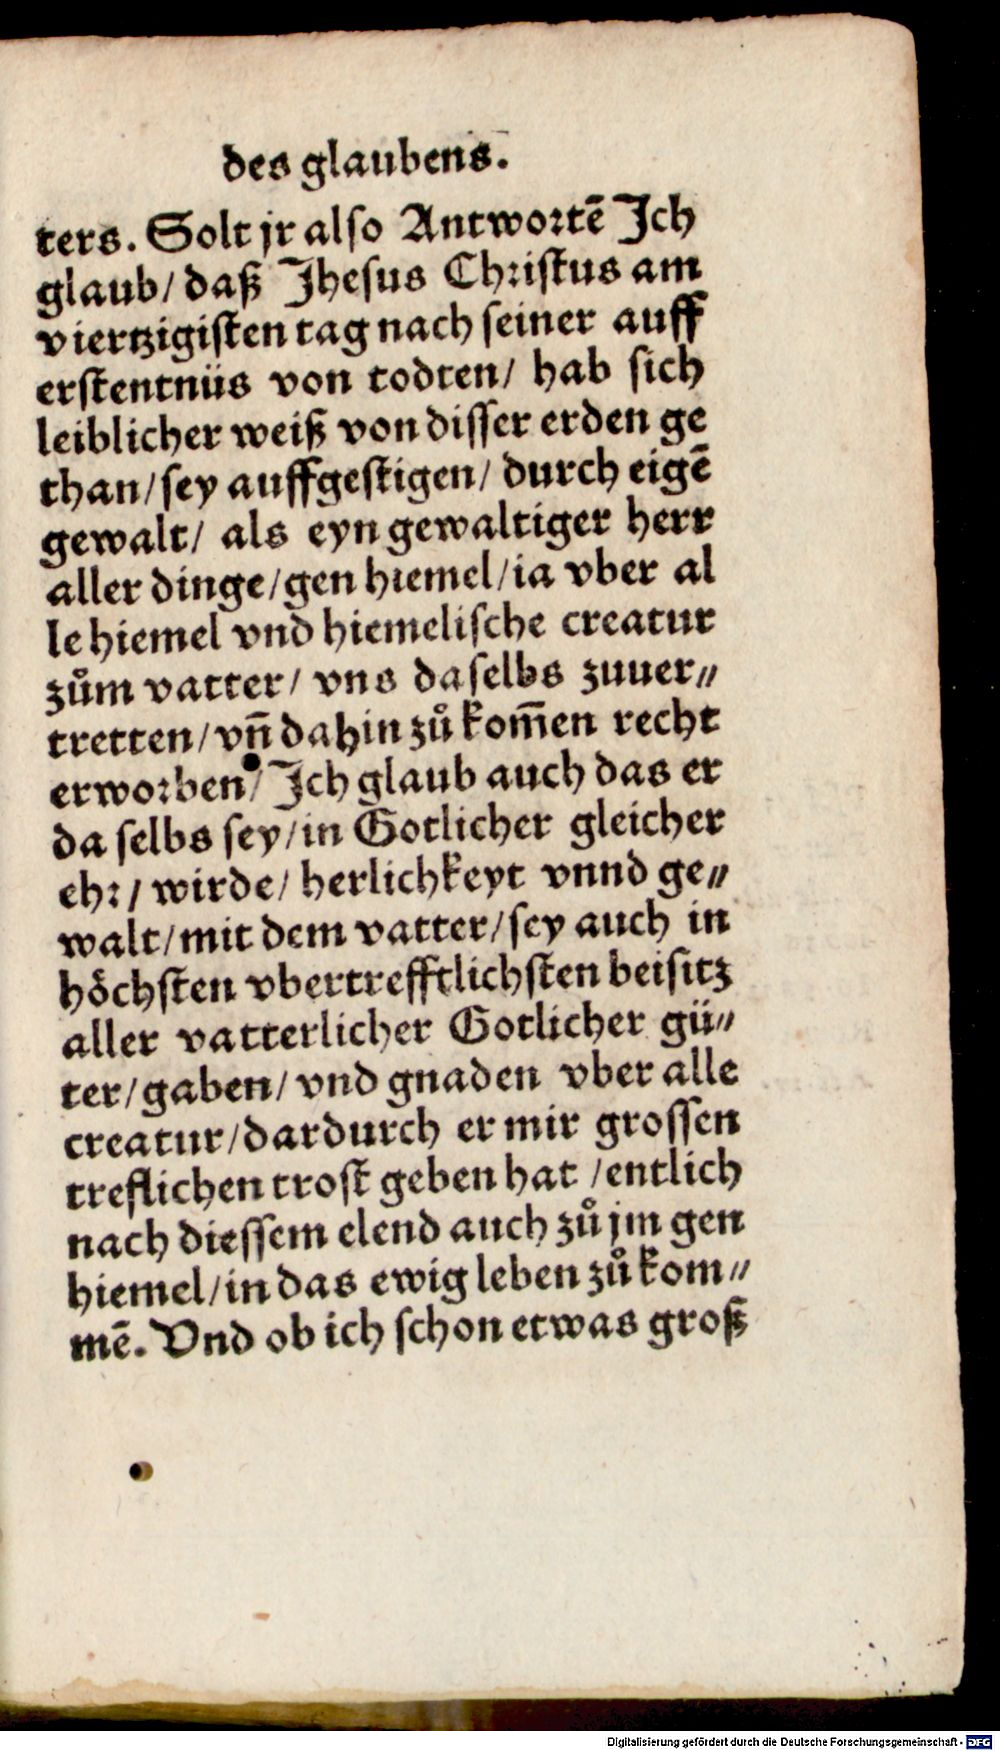 des glaubens.
ters. Solt jr also Antwortē Ich
glaub/ daß Jhesus Christus am
viertzigisten tag nach seiner auff
erstentnüs von todten/ hab sich
leiblicher weiß von disser erden ge
than/ sey auffgestigen/ durch eigē
gewalt/ als eyn gewaltiger herr
aller dinge/ gen hiemel/ ia vber al
le hiemel vnd hiemelische creatur
zům vatter/ vns daselbs zuuer⸗
tretten/ vn̄ dahin zů kom̄en recht
erworben/ Ich glaub auch das er
da selbs sey/ in Gotlicher gleicher
ehr/ wirde/ herlichkeyt vnnd ge⸗
walt/ mit dem vatter/ sey auch in
höchsten vbertrefftlichsten beisitz
aller vatterlicher Gotlicher gü⸗
ter/ gaben/ vnd gnaden vber alle
creatur/ dardurch er mir grossen
treflichen trost geben hat / entlich
nach diessem elend auch zů jm gen
hiemel/ in das ewig leben zů kom⸗
mē. Vnd ob ich schon etwas groß
Digitalisierung gefördert durch die Deutsche Forschungsgemeinschaft - DFG